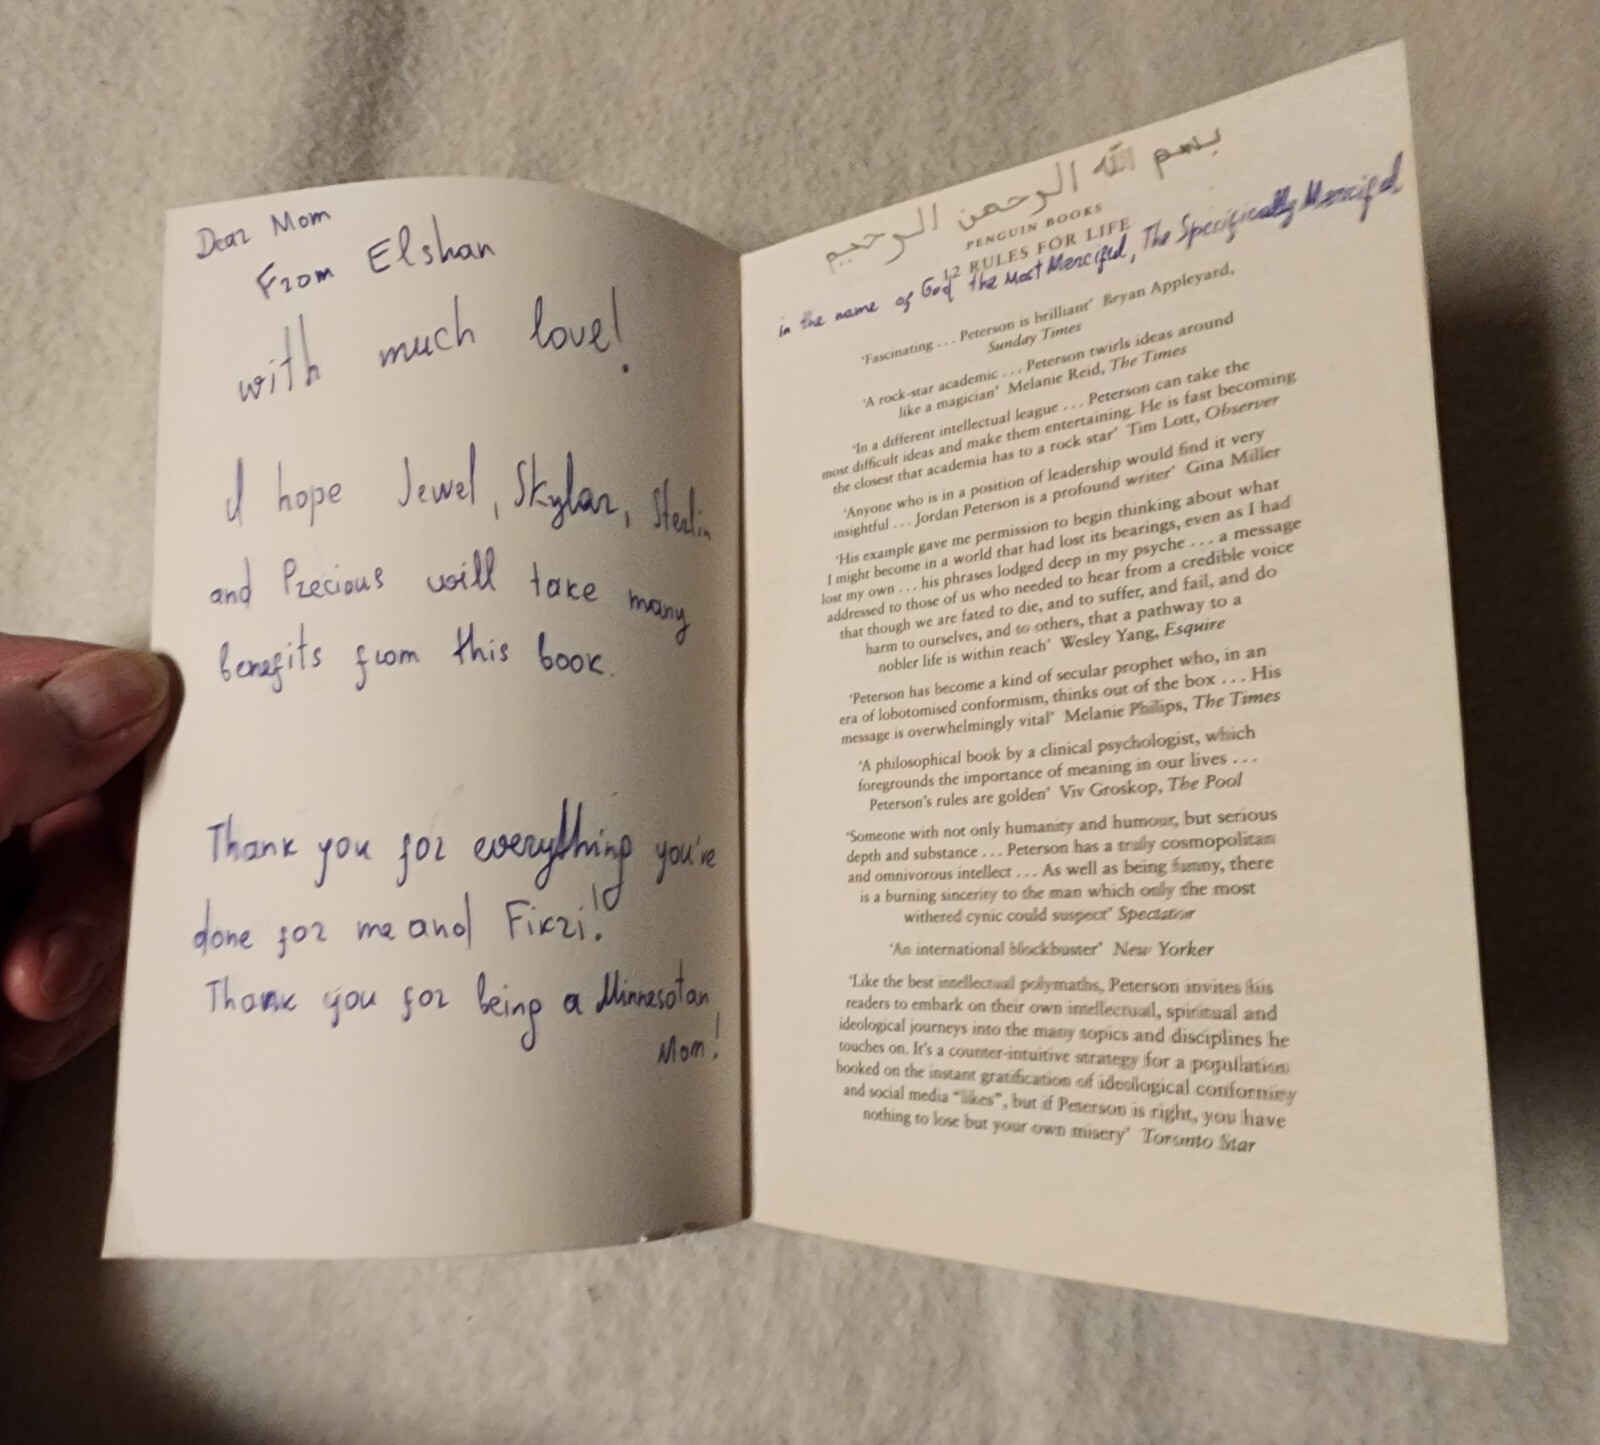 Dear Mom
From Elshan
with much love!
I hope Jewel, Skylar, Sterlin
and Precious will take many
benefits from this book.
Thank you for everything you've
done for me and Fikri!
Thank you for being a Minnesotan
Mom!
بسم الله الرحمن الرحيم
PENGUIN BOOKS
12 RULES FOR LIFE
in the name of God the Most Merciful, The Specifically Merciful
'Fascinating ... Peterson is brilliant' Bryan Appleyard,
Sunday Times
'A rock-star academic ... Peterson twirls ideas around
like a magician' Melanie Reid, The Times
'In a different intellectual league ... Peterson can take the
most difficult ideas and make them entertaining. He is fast becoming
the closest that academia has to a rock star' Tim Lott, Observer
'Anyone who is in a position of leadership would find it very
insightful ... Jordan Peterson is a profound writer' Gina Miller
'His example gave me permission to begin thinking about what
I might become in a world that had lost its bearings, even as I had
lost my own ... his phrases lodged deep in my psyche ... a message
addressed to those of us who needed to hear from a credible voice
that though we are fated to die, and to suffer, and fail, and do
harm to ourselves, and to others, that a pathway to a
nobler life is within reach' Wesley Yang, Esquire
'Peterson has become a kind of secular prophet who, in an
era of lobotomised conformism, thinks out of the box ... His
message is overwhelmingly vital' Melanie Phillips, The Times
'A philosophical book by a clinical psychologist, which
foregrounds the importance of meaning in our lives ...
Peterson's rules are golden' Viv Groskop, The Pool
'Someone with not only humanity and humour, but serious
depth and substance ... Peterson has a truly cosmopolitan
and omnivorous intellect ... As well as being funny, there
is a burning sincerity to the man which only the most
withered cynic could suspect' Spectator
'An international blockbuster' New Yorker
'Like the best intellectual polymaths, Peterson invites his
readers to embark on their own intellectual, spiritual and
ideological journeys into the many topics and disciplines he
touches on. It's a counter-intuitive strategy for a population
hooked on the instant gratification of ideological conformity
and social media "likes", but if Peterson is right, you have
nothing to lose but your own misery' Toronto Star